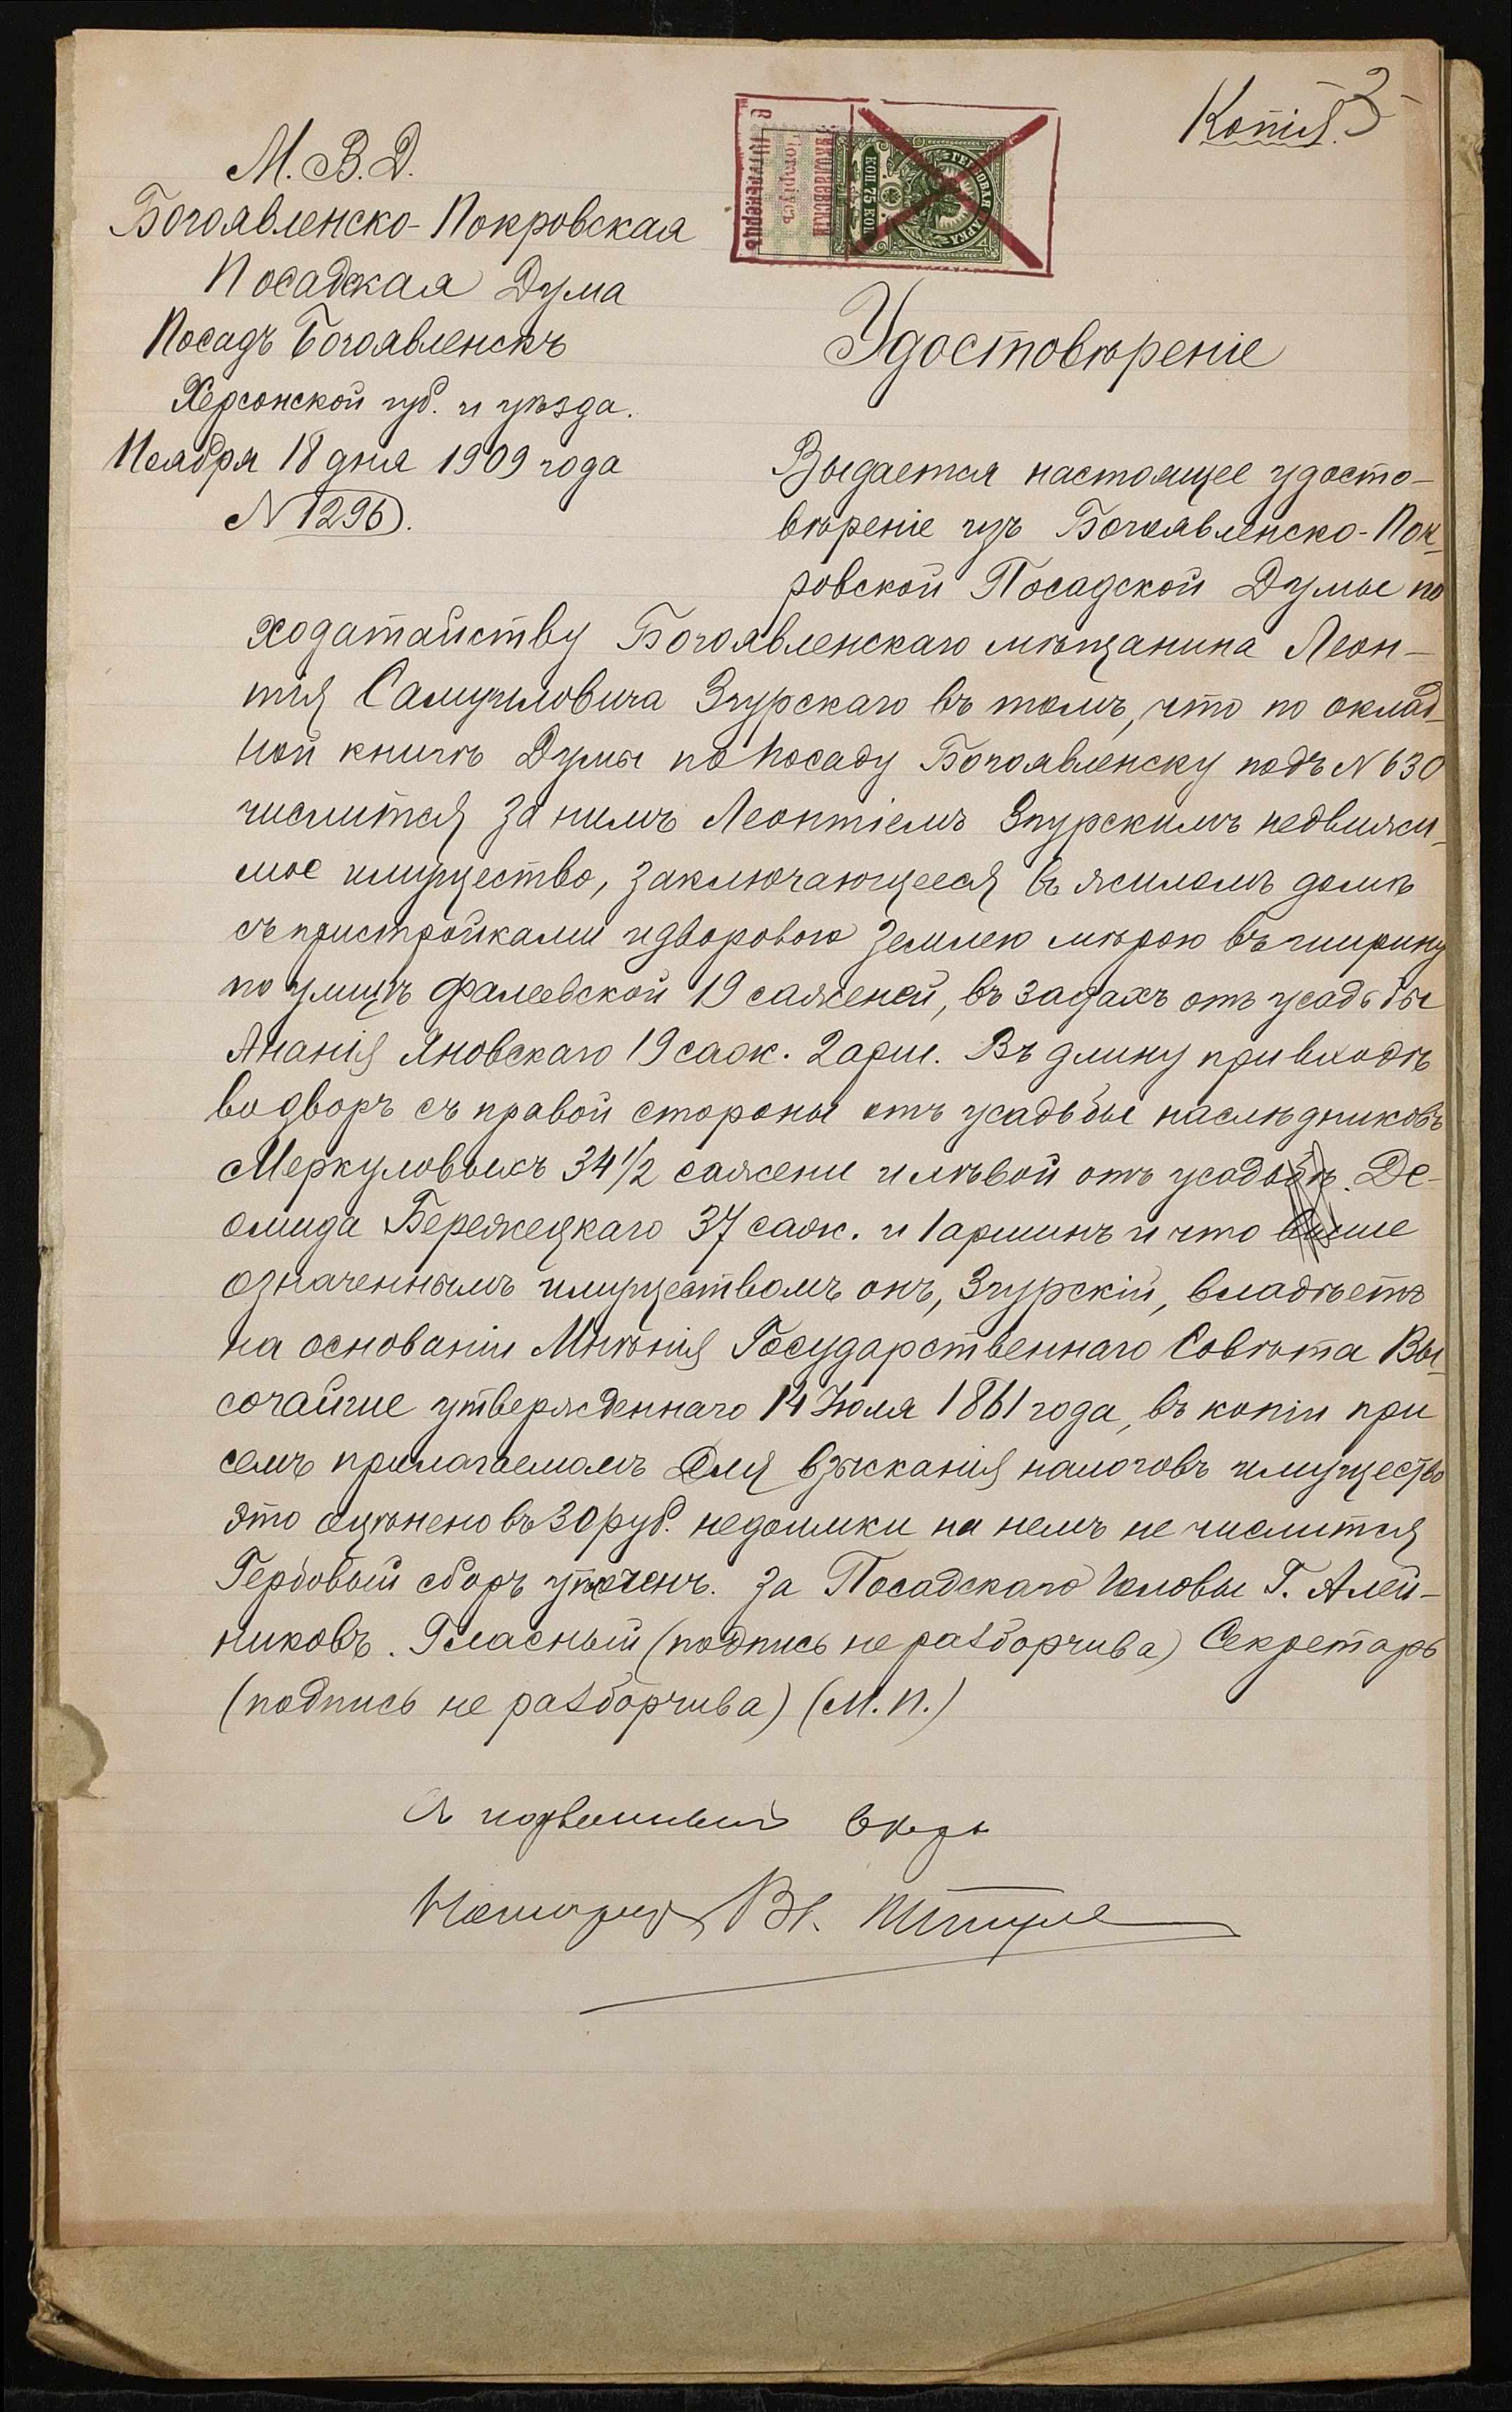 Копія. 3
М. В. Д.
Богоявленско-Покровская
Посадская Дума
Посадъ Богоявленскъ
Херсонской губ. и уѣзда.
Ноября 18 дня 1909 года
№ 1296.
Николаевскій
Нотаріусъ
ГЕРБОВАЯ МАРКА
КОП 75 КОП
Удостовѣреніе
Выдается настоящее удосто-
вѣреніе изъ Богоявленско-Пок-
ровской Посадской Думы по
ходатайству Богоявленскаго мѣщанина Леон-
тія Самуиловича Згурскаго въ томъ, что по оклад-
ной книгѣ Думы по посаду Богоявленску подъ № 630
числится за нимъ Леонтіемъ Згурскимъ недвижи-
мое имущество, заключающееся въ жиломъ домѣ
съ пристройками и дворовою землею мѣрою въ ширину
по улицѣ Фалеевской 19 саженей, въ задахъ отъ усадьбы
Ананія Яновскаго 19 саж. 2 арш. Въ длину при входѣ
во дворъ съ правой стороны отъ усадьбы наслѣдниковъ
Меркуловыхъ 34 1/2 сажени и лѣвой отъ усадьбѣ Де-
омида Бережецкаго 37 саж. и 1 аршинъ и что выше
означеннымъ имуществомъ онъ, Згурскій, владѣетъ
на основаніи Мнѣнія Государственнаго Совѣта Вы-
сочайше утвержденнаго 14 Июля 1861 года, въ копіи при
семъ прилагаемомъ Для взысканія налоговъ имущество
это оцѣнено въ 30 руб. недоимки на немъ не числится
Гербовый сборъ уплоченъ. За Посадскаго Головы Г. Алей-
никовъ. Гласный (подпись не разборчива) Секретарь
(подпись не разборчива) (М. П.)
Нотаріусъ Вл.